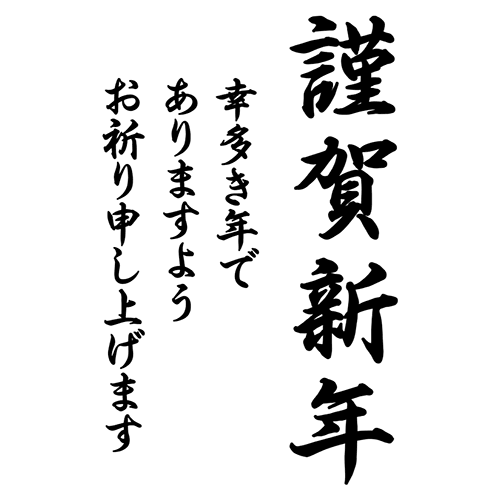 謹賀新年
幸多き年で
ありますよう
お祈り申し上げます